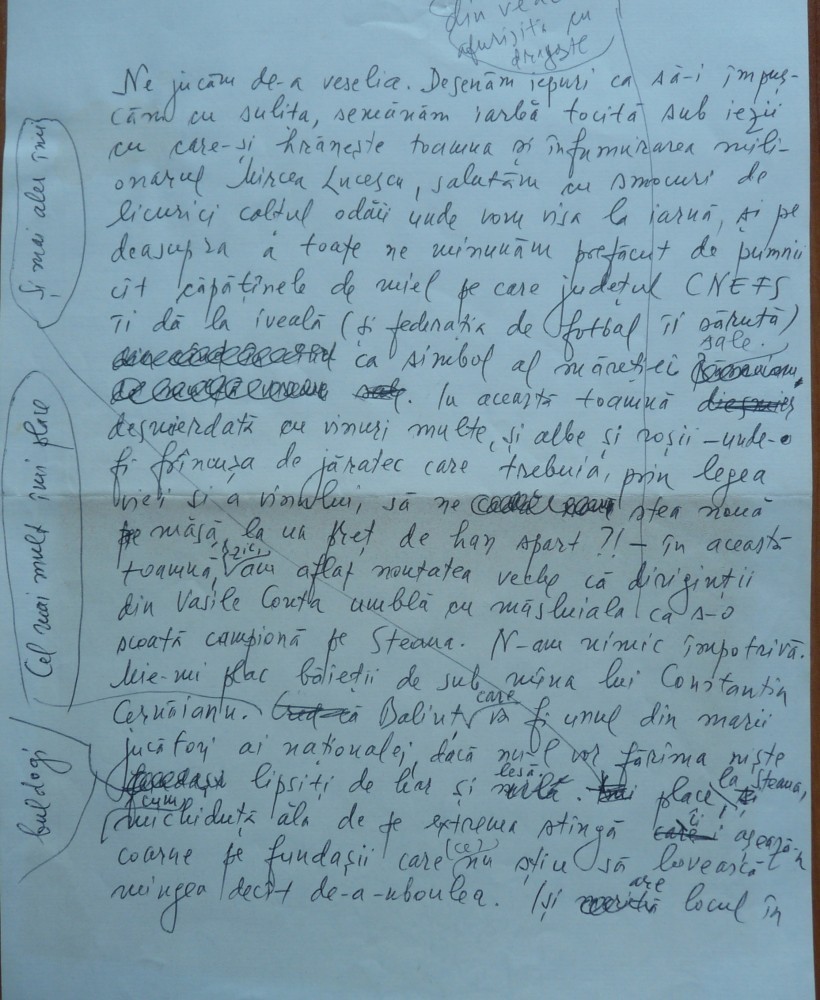 din
afurisită cu
dragoste
Ne jucăm de-a veselia. Desenăm iepuri ca să-i împuș-
căm cu sulița, semănăm iarbă tocită sub iezii
cu care-și hrănește toamna și înfumurarea mili-
onarul Mircea Lucescu, salutăm cu smocuri de
licurici colțul odăii unde vom visa la iarnă, și pe
deasupra a toate ne minunăm prefăcut de pumnii
cît căpățînele de miel pe care județul CNEFS
îi dă la iveală (și federația de fotbal îi sărută)
sale.
ca simbol al măreției
In această toamnă
desmierdată cu vinuri multe, și albe și roșii – unde-o
fi frînția de jăratec care trebuia, prin legea
viei și a vinului, să ne stea nouă
pe măsă, la un preț de han spart ?! – în această
toamnă, zic, am aflat noutatea veche că diriginții
din Vasile Conta umblă cu măsluiala ca s-o
scoată campionă pe Steaua. N-am nimic împotrivă.
Mie-mi plac băieții de sub mîna lui Constantin
Cernăianu. Balint care va fi unul din marii
jucători ai naționalei, dacă nu-l vor fărîma niște
lipsiți de har și lesă. place, la Steaua,
cum michiduță ăla de pe extrema stîngă îi așează
coarne pe fundașii care (ce) nu știu să lovească
mingea decît de-a-mboulea. (și are locul în
Și mai ales îmi
Cel mai mult îmi place
buldogi